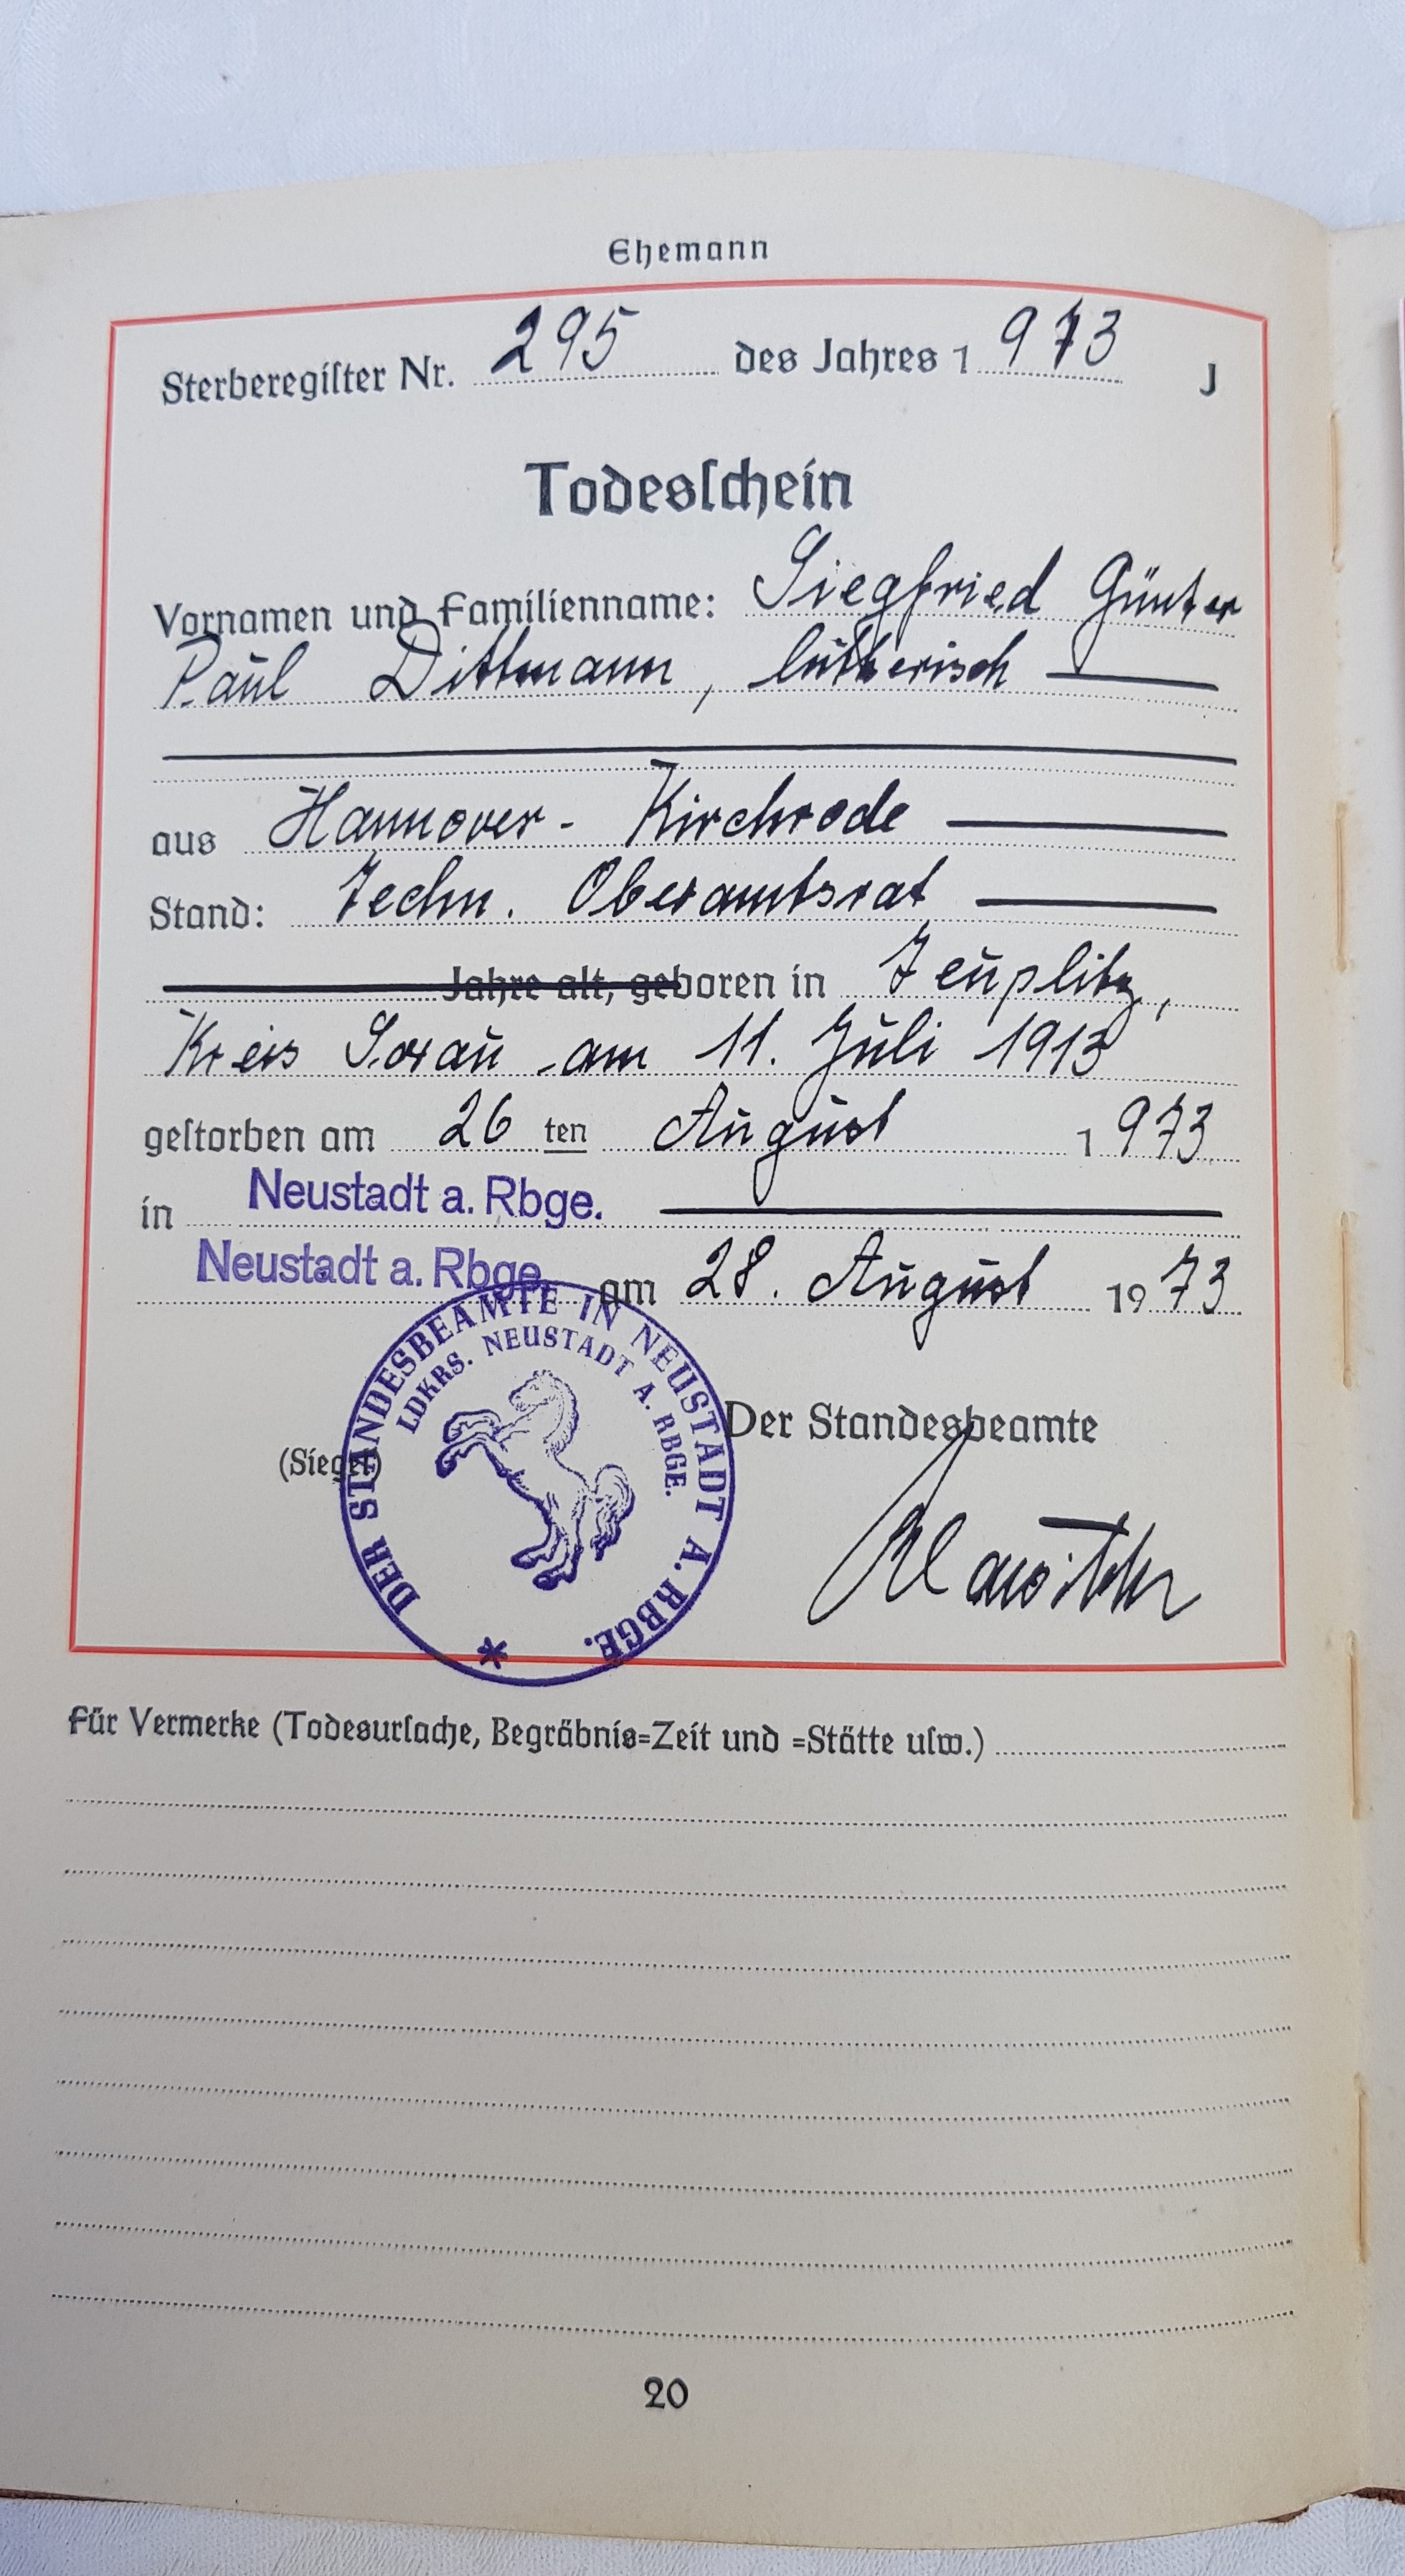 Ehemann
Sterberegister Nr. 295 des Jahres 1973 J
Todesschein
Vornamen und Familienname: Siegfried Günter
Paul Dittmann, lutherisch
aus Hannover - Kirchrode
Stand: Techn. Oberamtsrat
Jahre alt, geboren in Teuplitz,
Kreis Sorau am 11. Juli 1913
gestorben am 26ten August 1973
in Neustadt a. Rbge.
Neustadt a. Rbge. am 28. August 1973
DER STANDESBEAMTE IN NEUSTADT A. RBGE. *
LDKRS. NEUSTADT A. RBGE.
Der Standesbeamte
(Siegel)
Für Vermerke (Todesursache, Begräbnis=Zeit und =Stätte usw.)
20